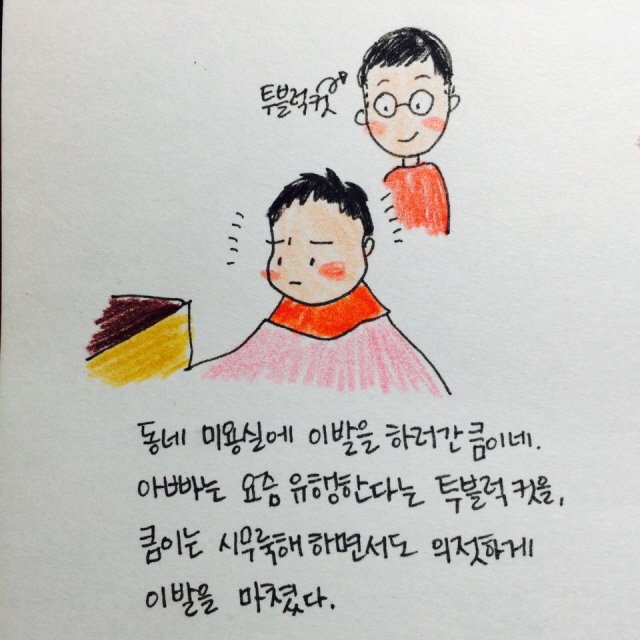 투블럭컷
동네 미용실에 이발을 하러간 쿰이네.
아빠는 요즘 유행한다는 툭블럭 컷을,
쿰이는 시무룩해 하면서도 의젓하게
이발을 마쳤다.